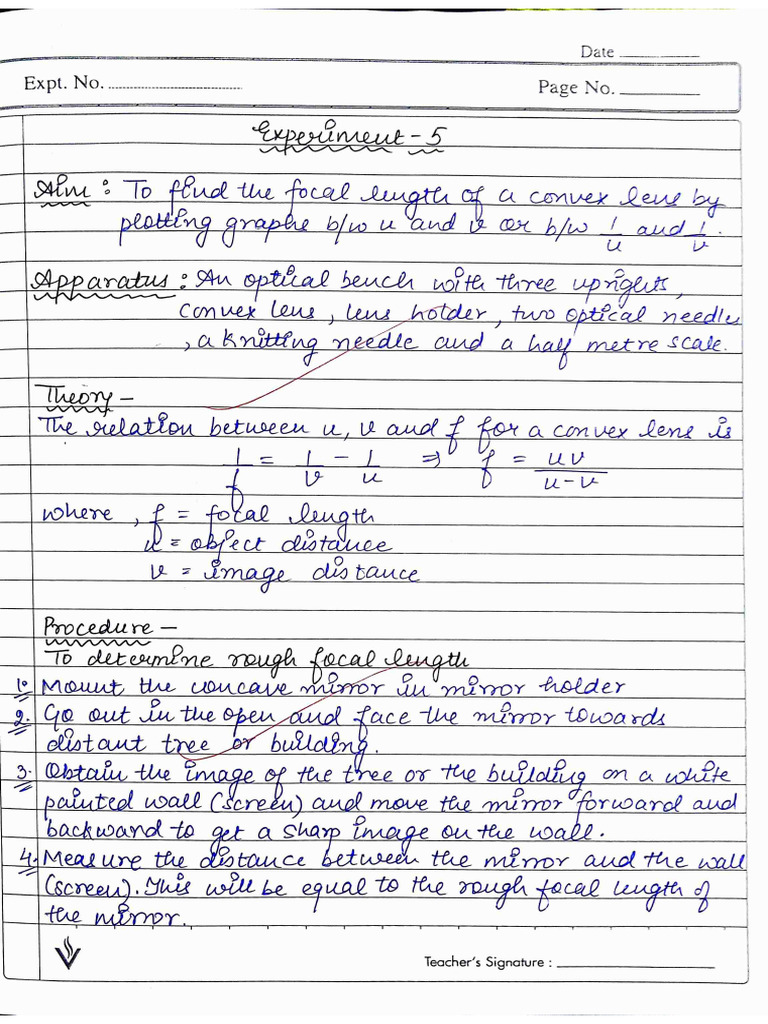 Date
Expt. No.
Page No.
Experiment - 5
Aim : To find the focal length of a convex lens by
plotting graphs b/w u and v or b/w 1/u and 1/v.
Apparatus : An optical bench with three uprights,
convex lens, lens holder, two optical needles
, a knitting needle and a half metre scale.
Theory -
The relation between u, v and f for a convex lens is
1/f = 1/v - 1/u ⇒ f = uv/u-v
where, f = focal length
u = object distance
v = image distance
Procedure -
To determine rough focal length
1. Mount the concave mirror in mirror holder
2. Go out in the open and face the mirror towards
distant tree or building.
3. Obtain the image of the tree or the building on a white
painted wall (screen) and move the mirror forward and
backward to get a sharp image on the wall.
4. Measure the distance between the mirror and the wall
(screen). This will be equal to the rough focal length of
the mirror.
Teacher's Signature :